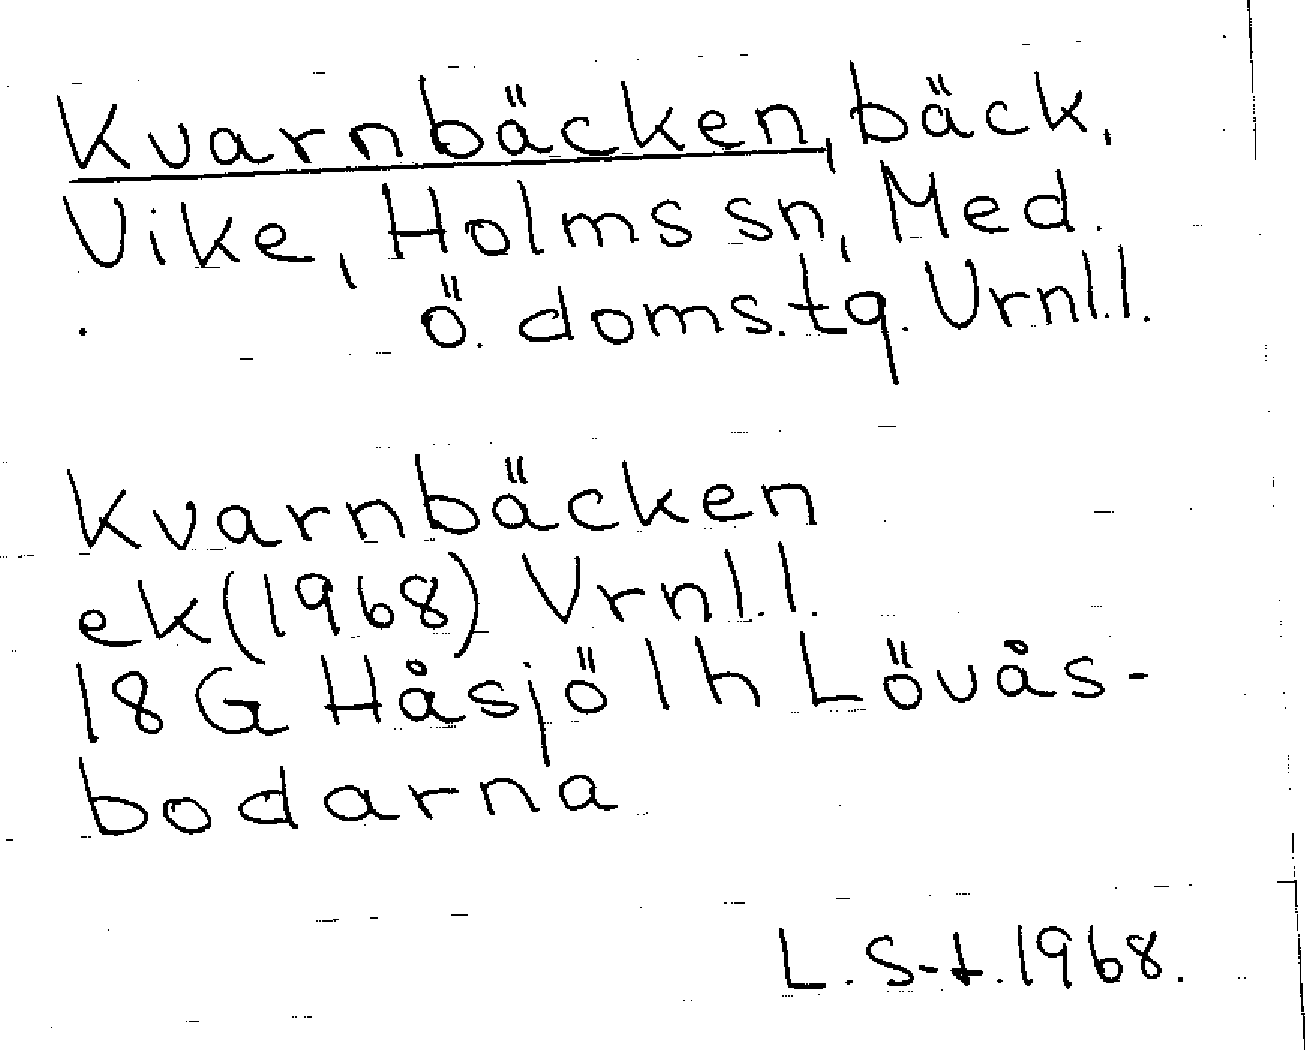 Kvarnbäcken, bäck.
Vike, Holms sn, Med.
Ö. doms.tg. Vrnl.l.
Kvarnbäcken
ek (1968) Vrnl.l.
18 G Håsjö 1h Lövås-
bodarna
L. S-t. 1968.